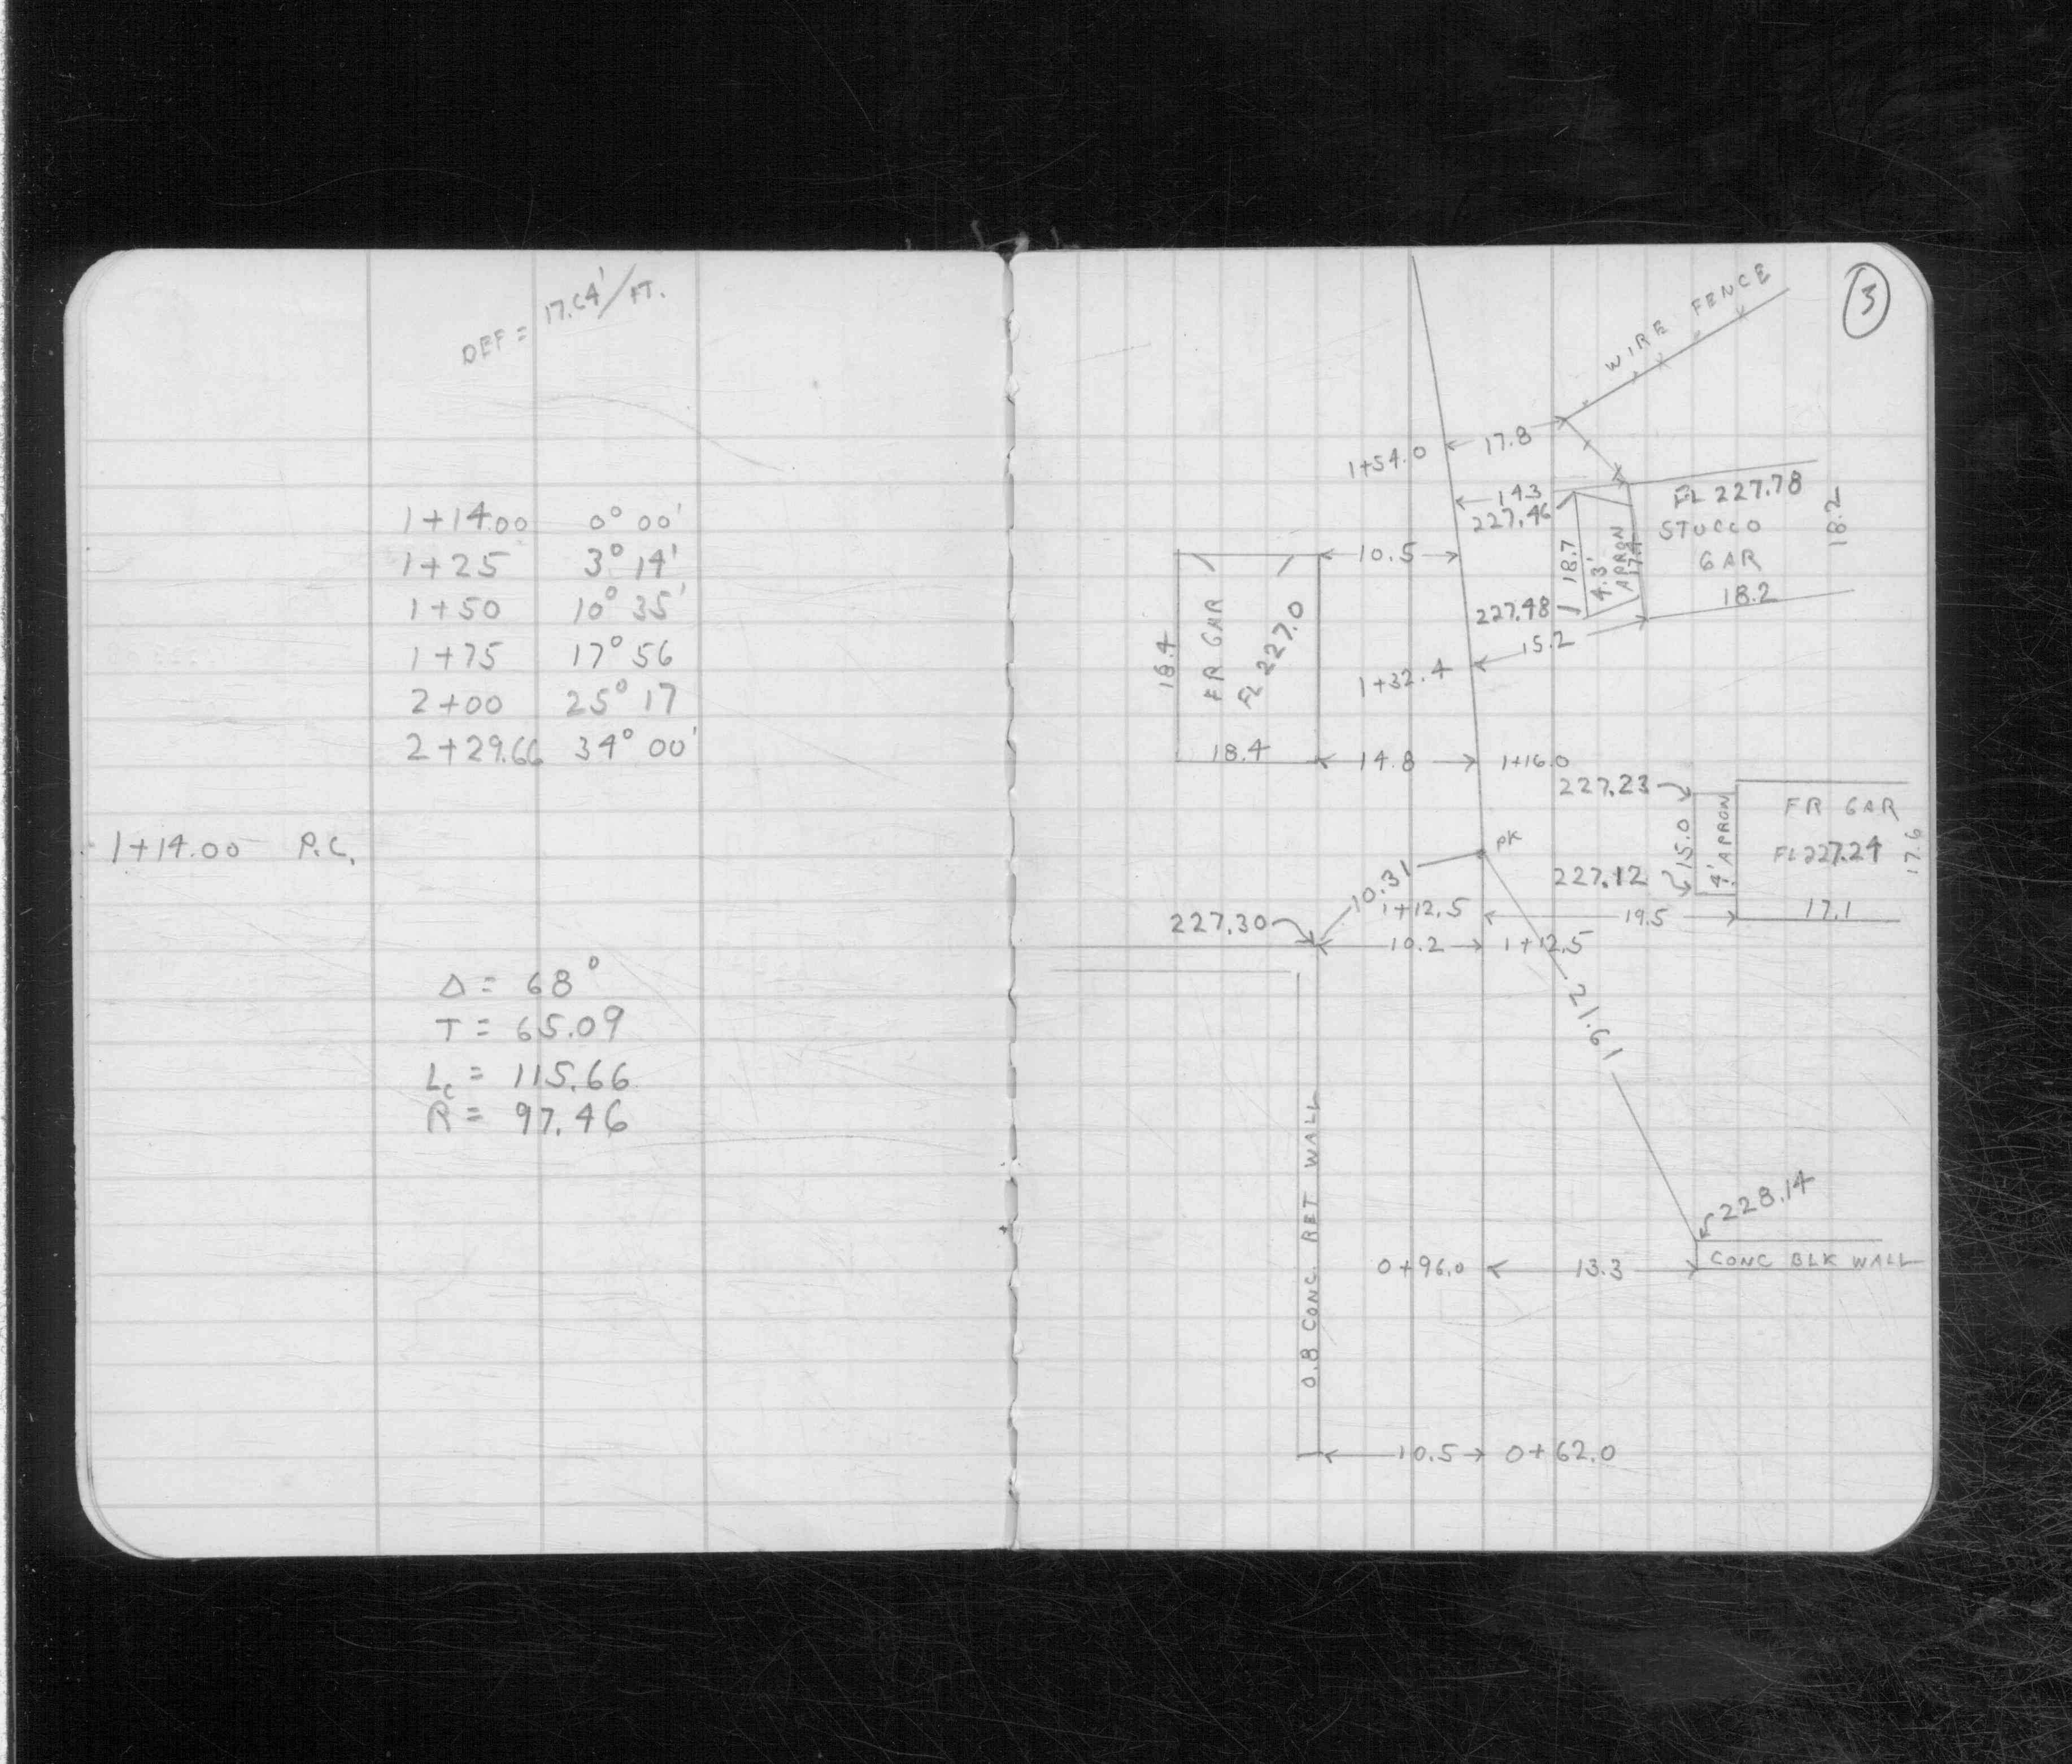 DEF = 17.64'/FT.
1+14.00 0° 00'
1+25 3° 14'
1+50 10° 35'
1+75 17° 56
2+00 25° 17
2+29.66 34° 00'
1+14.00 P.C.
Δ = 68°
T = 65.09
Lc = 115.66
R = 97.46
3
WIRE FENCE
1+54.0 17.8
14.3
227.46
FL 227.78
STUCCO
GAR
18.2
18.2
18.7
4.3'
APRON
10.5
227.48
15.2
1+32.4
18.4
FR GAR
FL 227.0
18.4
14.8 1+16.0
227.23
15.0
4' APRON
FR GAR
FL 227.24
17.6
17.1
227.12
PK
10.31
1+12.5 19.5
227.30
10.2 1+12.5
21.61
0.8 CONC. RET WALL
228.14
0+96.0 13.3 CONC BLK WALL
10.5 0+62.0